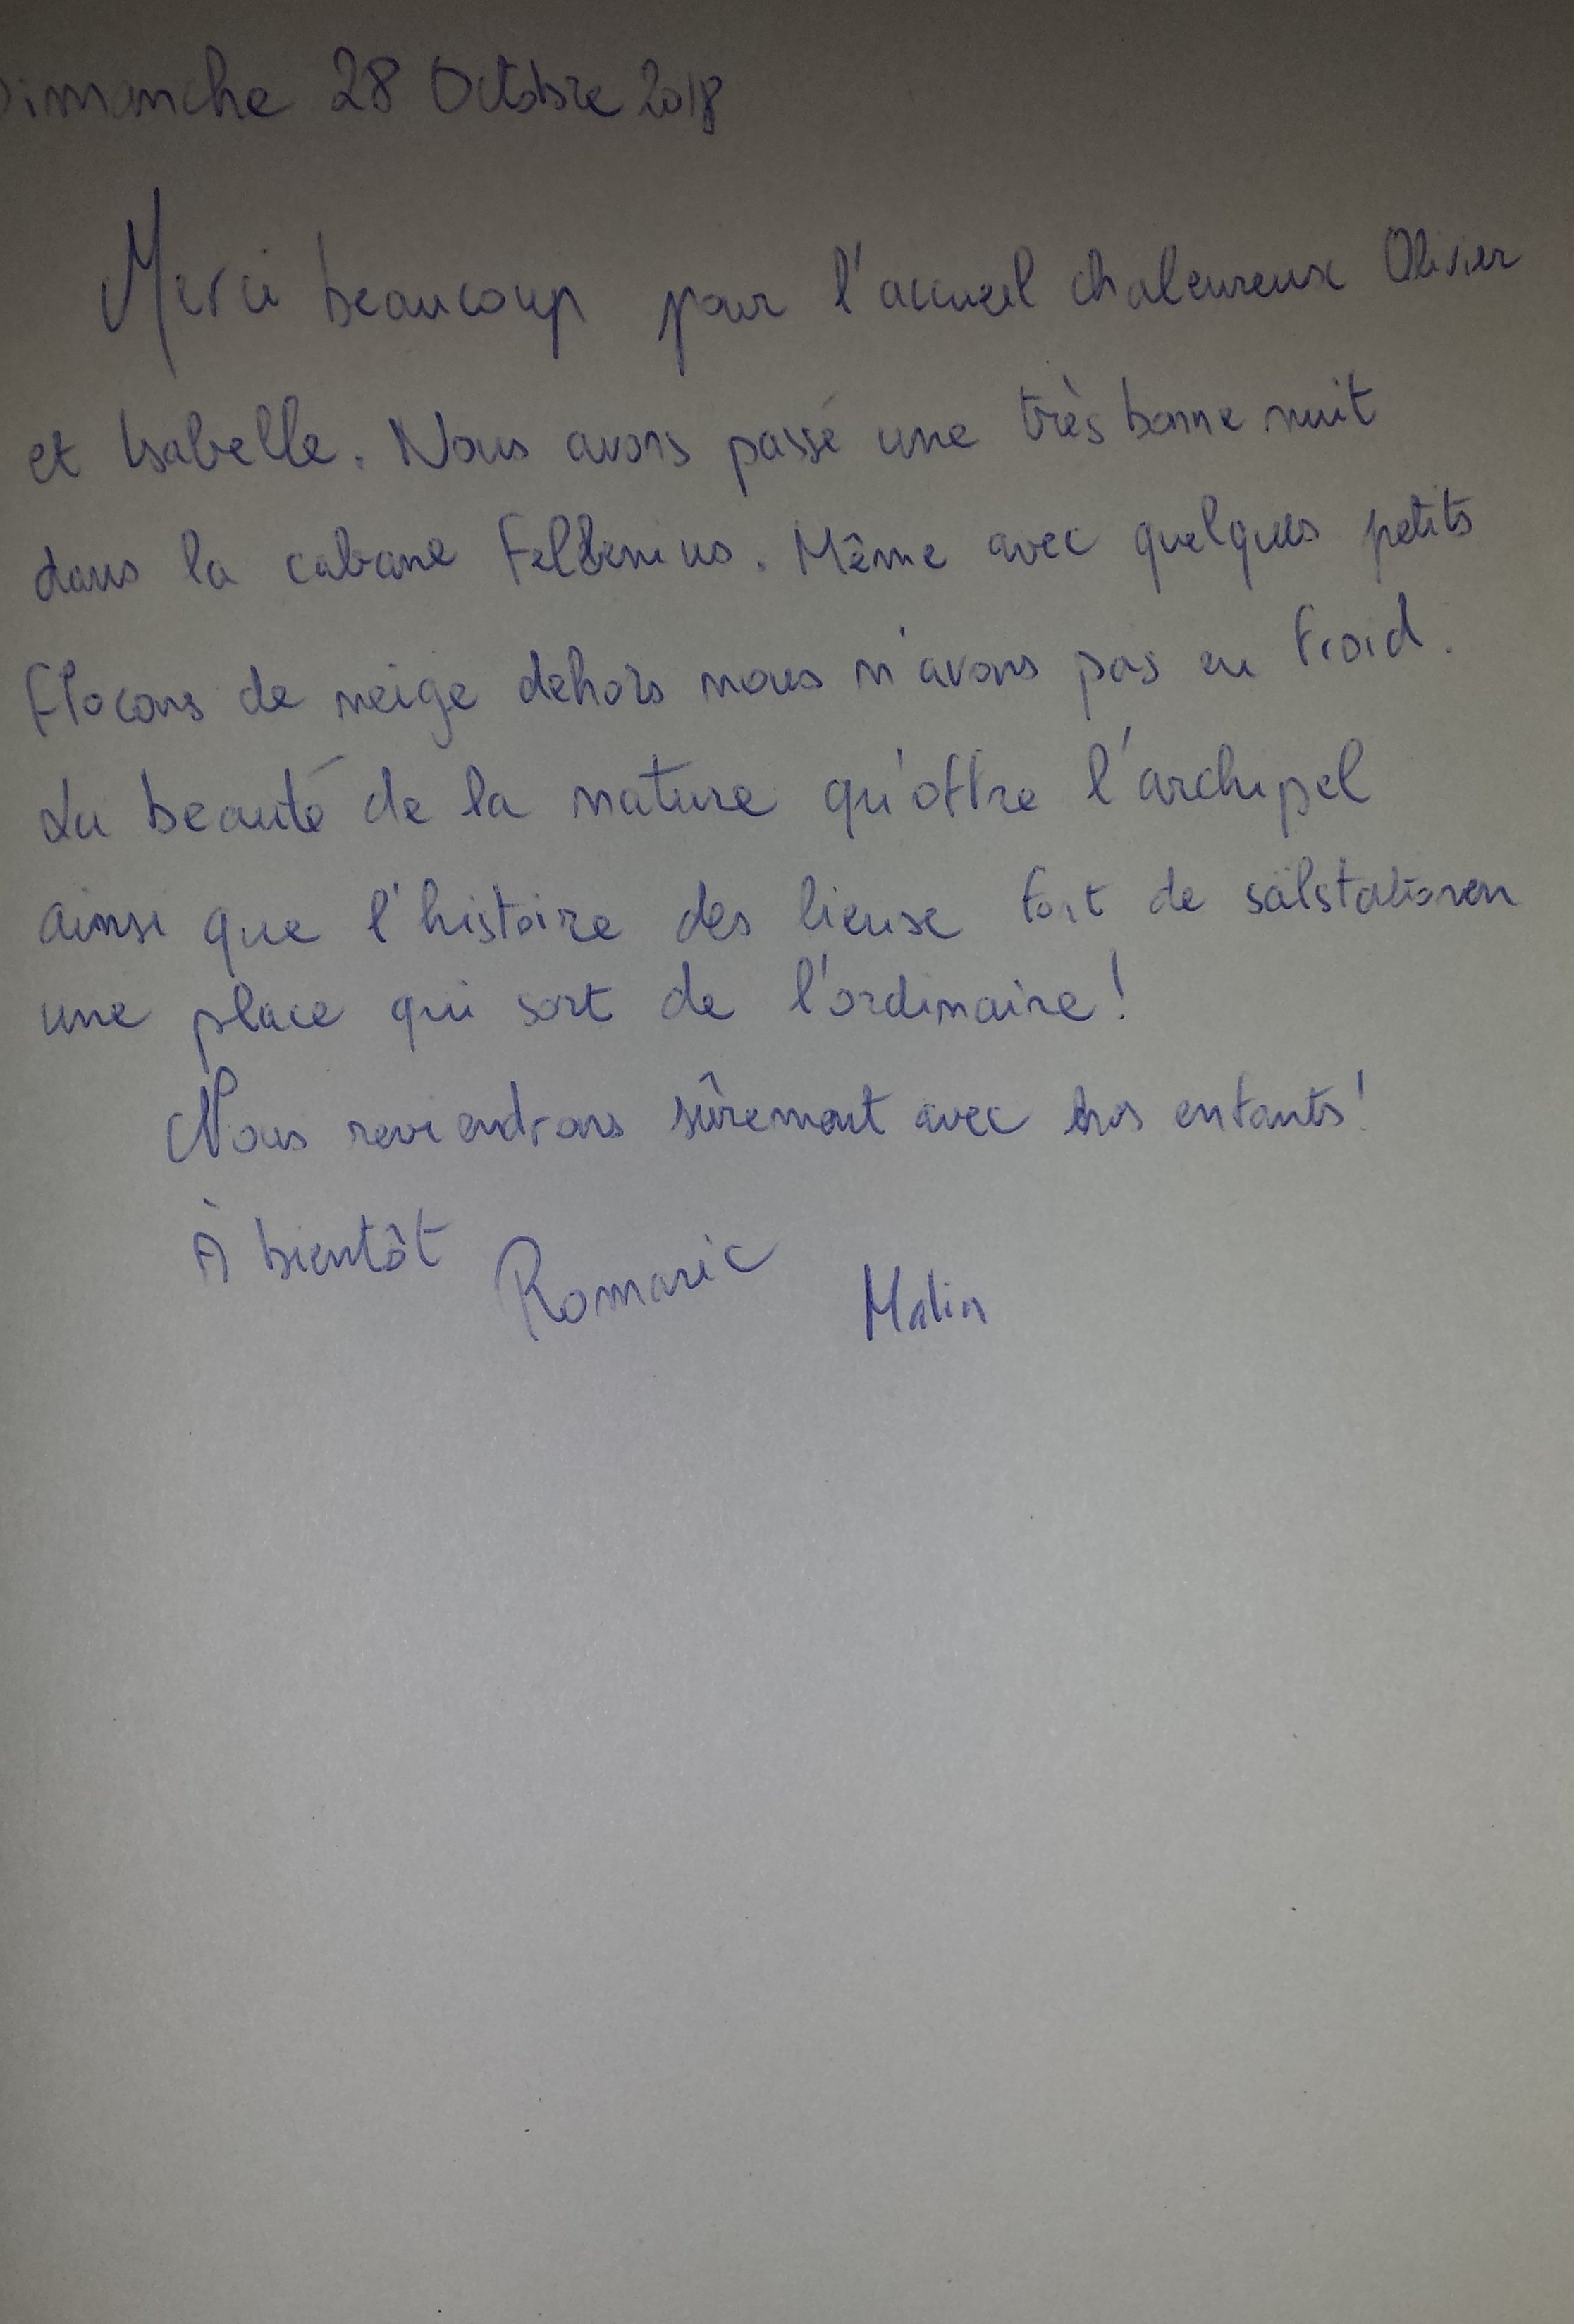 Dimanche 28 Octobre 2018
Merci beaucoup pour l'accueil chaleureux Olivier
et Isabelle. Nous avons passé une très bonne nuit
dans la cabane. Même avec quelques petits
flocons de neige dehors nous n'avons pas eu froid.
La beauté de la nature qu'offre l'archipel
ainsi que l'histoire des lieux font de sälstationen
une place qui sort de l'ordinaire!
Nous reviendrons sûrement avec nos enfants!
À bientôt Romaric Malin